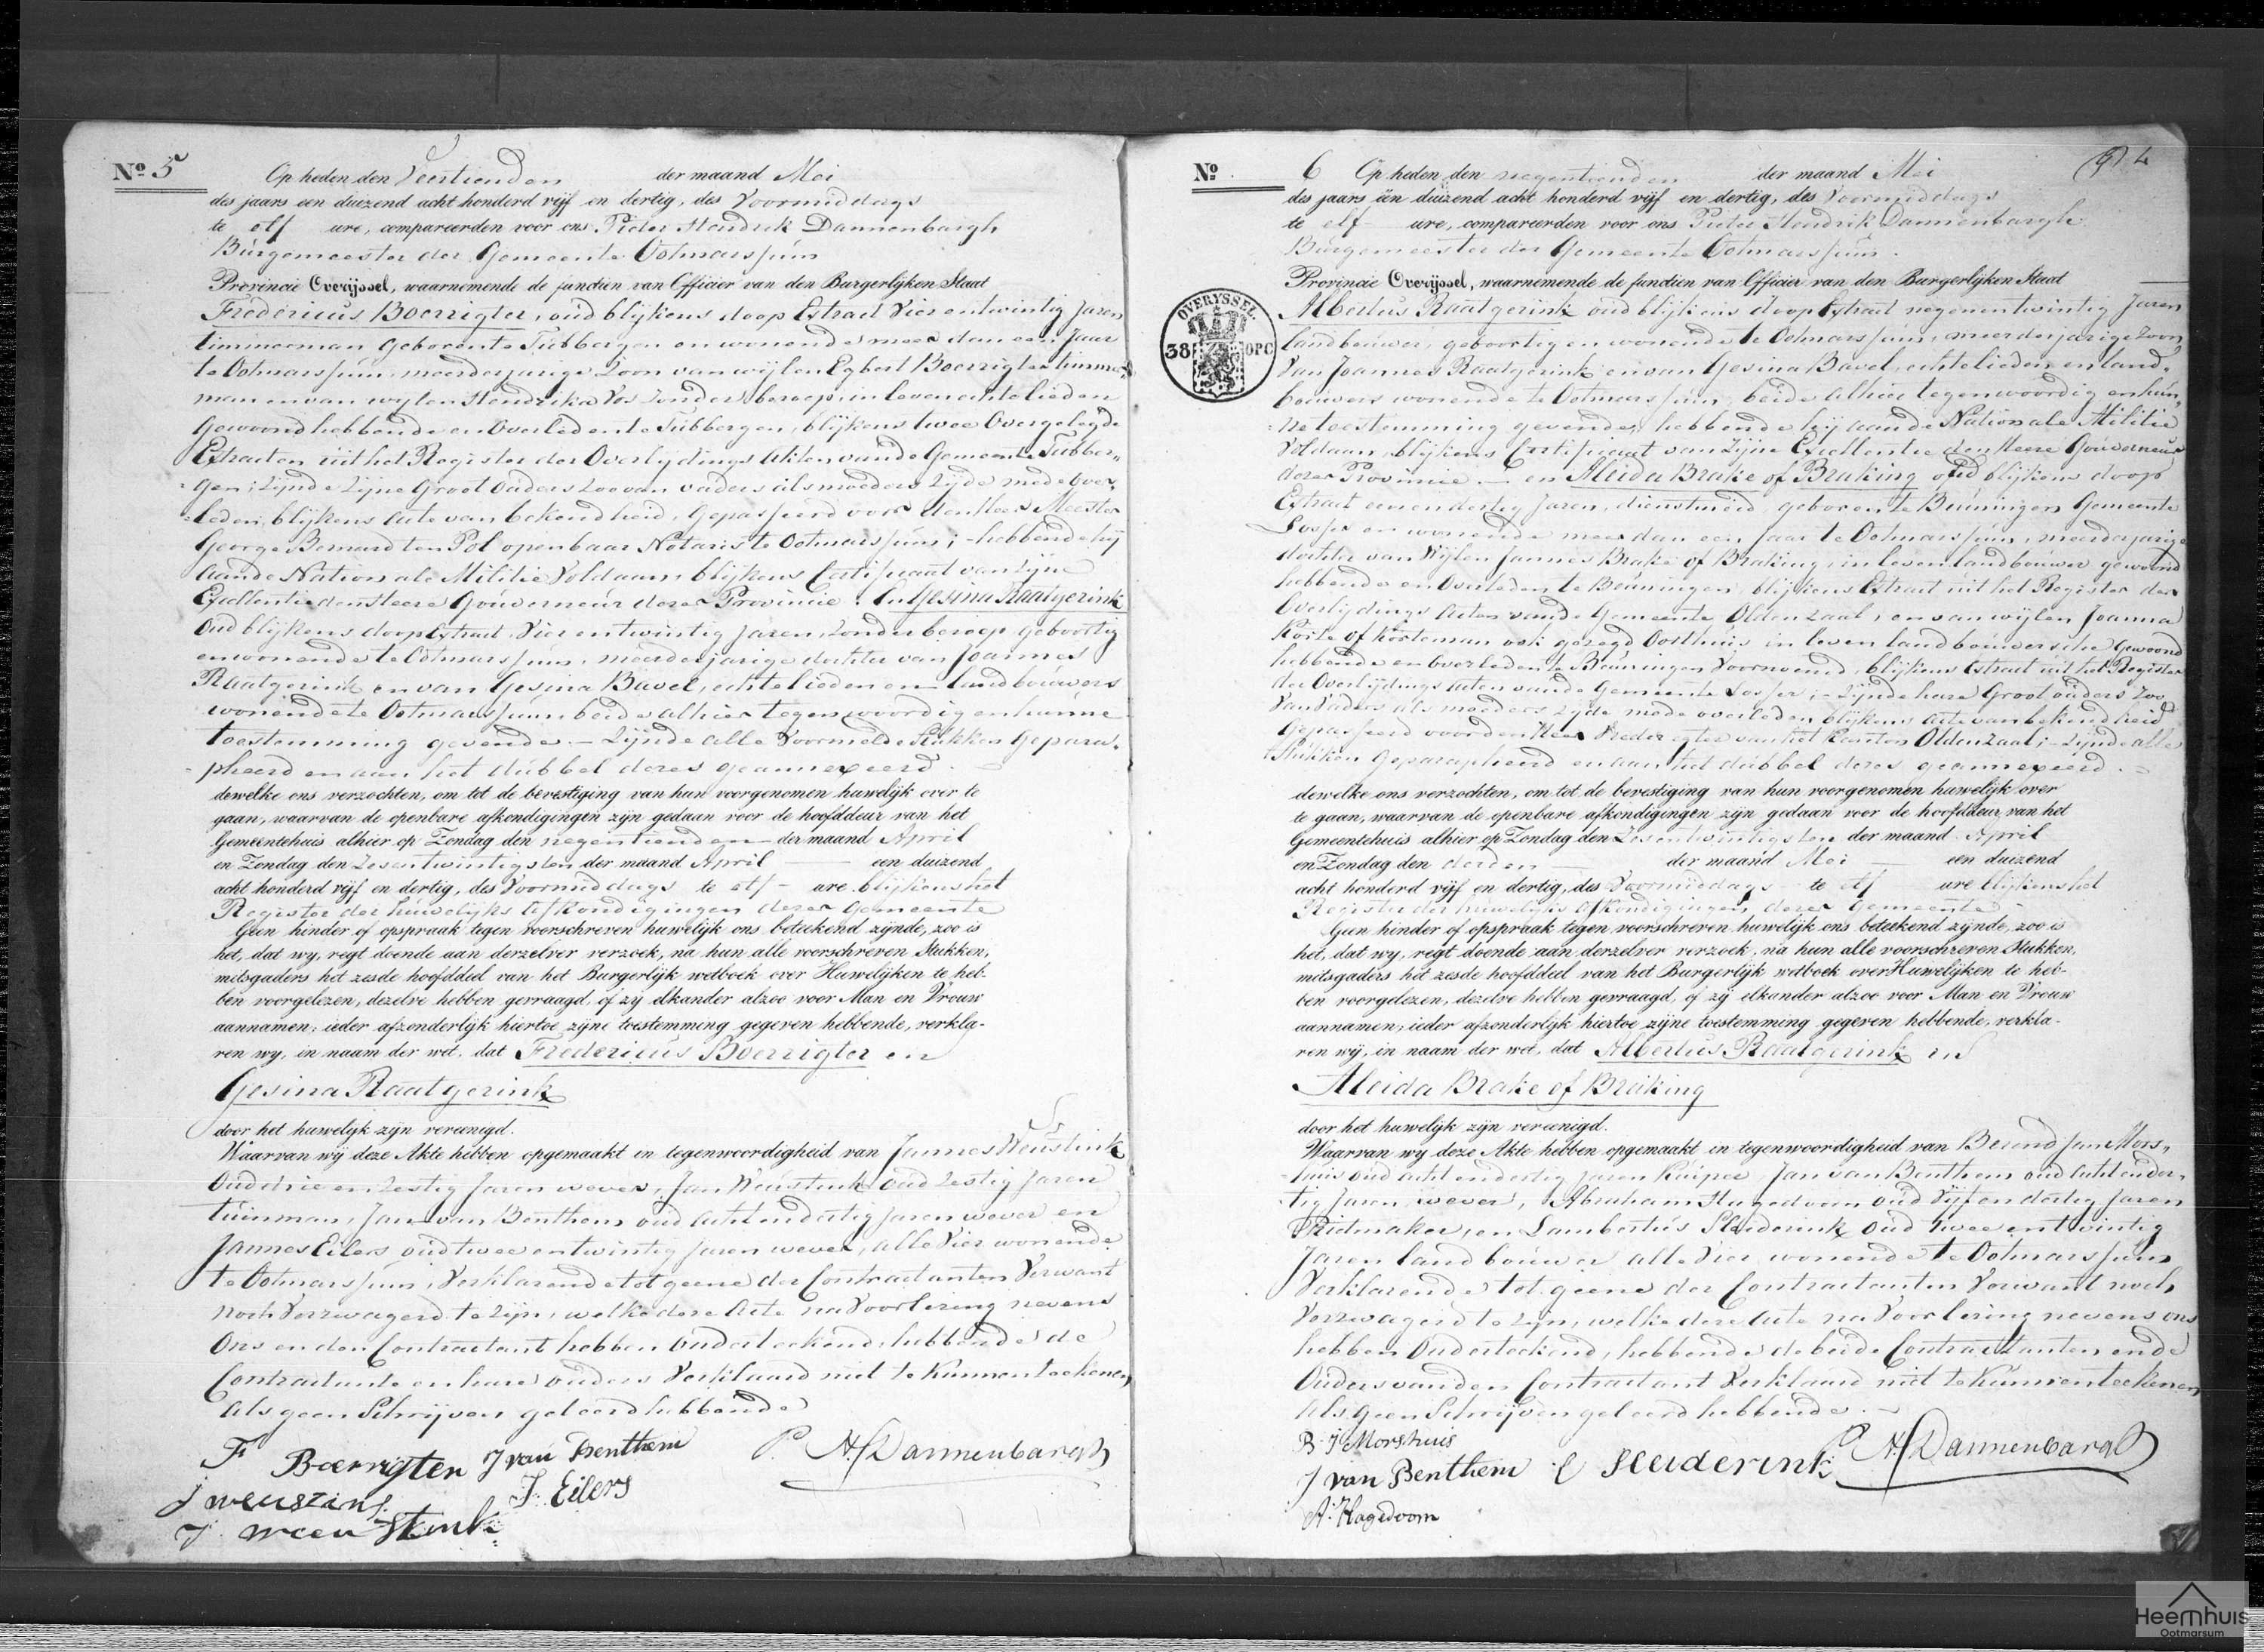 No 5
Op heden den Veertienden der maand Mei
des jaars een duizend acht honderd vijf en dertig, des Voormiddags
te elf ure, compareerden voor ons Pieter Hendrik Dannenbargh
Burgemeester der Gemeente Ootmarssum
Provincie Overijssel, waarnemende de functien van Officier van den Burgerlijken Staat
Fredericus Boerrigter, oud blijkens doop Extract Vier entwintig Jaren
timmerman geboren te Tubbergen en wonende meer dan een Jaar
te Ootmarssum, meerderjarige Zoon van wijlen Egbert Boerrigter timmer,,
man en van wylen Hendrika Vos zonder beroep, in leven echtelieden
Gewoond hebbende en Overleden te Tubbergen, blijkens twee Overgelegde
Extracten uit het Register der Overlijdings Akten van de Gemeente Tubber,,
gen; Zijnde Zijne Groot Ouders Zoo van vaders als moeders Zijde mede over,
leden, blijkens Acte van bekendheid, Gepasseerd voor den Heer Meester
George Bernard ten Pol openbaar Notaris te Ootmarssum; - hebbende hij
aan de Nationale Militie Voldaan, blijkens Certificaat van Zijne
Excellentie den Heere Gouverneur dezer Provincie. En Gesina Raatgerink
Oud blijkens doop Extract, Vier entwintig Jaren, Zonder beroep, geboortig
en wonende te Ootmarssum, meerderjarige dochter van Joannes
Raatgerink en van Gesina Bavel, echtelieden en landbouwers
wonende te Ootmarssum beide alhier tegenwoordig en hunne
toestemming gevende. - Zijnde alle Voormelde Stukken Gepara,
pheerd en aan het dubbel dezes geannexeerd.
dewelke ons verzochten, om tot de bevestiging van hun voorgenomen huwelijk over te
gaan, waarvan de openbare afkondigingen zijn gedaan voor de hoofddeur van het
Gemeentehuis alhier op Zondag den negentienden der maand April
en Zondag den Zesentwintigsten der maand April een duizend
acht honderd vijf en dertig, des Voormiddags te elf - ure blijkens het
Register der huwelijks Afkondigingen dezer Gemeente
Geen hinder of opspraak tegen voorschreven huwelijk ons beteekend zijnde, zoo is
het, dat wy, regt doende aan derzelver verzoek, na hun alle voorschreven Stukken,
mitsgaders het zesde hoofddeel van het Burgerlijk wetboek over Huwelijken te heb-
ben voorgelezen, dezelve hebben gevraagd, of zy elkander alzoo voor Man en Vrouw
aannamen; ieder afzonderlijk hiertoe zijne toestemming gegeven hebbende, verkla-
ren wy, in naam der wet, dat Fredericus Boerrigter en
Gesina Raatgerink
door het huwelijk zijn vereenigd.
Waarvan wij deze Akte hebben opgemaakt in tegenwoordigheid van Jannes Weustink
Oud drie en Zestig Jaren wever, Jan Weustink oud Zestig Jaren
tuinman, Jan van Benthem oud Achtendertig Jaren wever en
Jannes Eilers oud twee entwintig Jaren wever, alle Vier wonende
te Ootmarssum, Verklarende tot geene der Contractanten Verwant
noch Verzwagerd te Zijn, welke deze Acte na Voorlezing nevens
Ons en den Contractant hebben onderteekend, hebbende de
Contractante en hare ouders Verklaard niet te Kunnen teekenen,
als geen Schrijven geleerd hebbende
F Boerrigter J van Benthem P. H. Dannenbargh
J weustink J. Eilers
J. weeustink
No 6 Op heden den negentienden der maand Mei
des jaars een duizend acht honderd vijf en dertig, des Voormiddags
te elf ure, compareerden voor ons Pieter Hendrik Dannenbargh
Burgemeester der Gemeente Ootmarssum.
Provincie Overijssel, waarnemende de functien van Officier van den Burgerlijken Staat
OVERYSSEL.
38 OPC
Albertus Raatgerink oud blijkens doop Extract negenentwintig Jaren
landbouwer, geboortig en wonende te Ootmarssum, meerderjarige Zoon
Van Joannes Raatgerink en van Gesina Bavel, echtelieden en land,,
bouwers wonende te Ootmarssum, beide alhier tegenwoordig en hun,,
ne toestemming gevende, hebbende hij aan de Nationale Militie
Voldaan, blijkens Certificaat van Zijne Excellentie den Heere Gouverneur
dezer Provincie. - en Aleida Brake of Braking oud blijkens doop
Extract eenendertig Jaren, dienstmeid, geboren te Beuningen Gemeente
Losser en wonende meer dan een Jaar te Ootmarssum, meerderjarige
dochter van Wijlen Jannes Brake of Braking, in leven landbouwer gewoond
hebbende en Overleden te Beuningen blijkens Extract uit het Register der
Overlijdings Acten van de Gemeente Oldenzaal, en van wijlen Joanna
Korte of Korteman ook gezegd Oosthuis in leven landbouwersche Gewoond
hebbende en overleden te Beuningen Voornoemd, blijkens Extract uit het Register
der Overlijdings Acten van de Gemeente Losser; - Zijnde hare Groot ouders Zoo
Van Vaders als moeders Zijde mede overleden blijkens Acte van bekendheid
Gepasseerd voor den Heer Vrederegter van het Kanton Oldenzaal; - Zijnde alle
Stukken Geparapheerd en aan het dubbel dezes geannexeerd.
dewelke ons verzochten, om tot de bevestiging van hun voorgenomen huwelijk over
te gaan, waarvan de openbare afkondigingen zijn gedaan voor de hoofddeur van het
Gemeentehuis alhier op Zondag den Zesentwintigsten der maand April
en Zondag den derden der maand Mei een duizend
acht honderd vijf en dertig, des Voormiddags te elf ure blijkens het
Register der huwelijks afkondigingen dezer Gemeente
Geen hinder of opspraak tegen voorschreven huwelijk ons beteekend zijnde, zoo is
het, dat wy, regt doende aan derzelver verzoek, na hun alle voorschreven Stukken,
mitsgaders het zesde hoofddeel van het Burgerlijk wetboek over Huwelijken te heb-
ben voorgelezen, dezelve hebben gevraagd, of zij elkander alzoo voor Man en Vrouw
aannamen; ieder afzonderlijk hiertoe zijne toestemming gegeven hebbende, verkla-
ren wij, in naam der wet, dat Albertus Raatgerink en
Aleida Brake of Braking
door het huwelijk zijn vereenigd.
Waarvan wy deze Akte hebben opgemaakt in tegenwoordigheid van Berend Jan Mors,,
huis oud acht endertig Jaren Kuiper, Jan van Benthem oud Achtender,
tig Jaren, wever, Abraham Hagedoorn oud Vijf en dertig Jaren
Rietmaker, en Lambertus Sleiderink oud twee entwintig
Jaren landbouwer alle Vier wonende te Ootmarssum
Verklarende tot geene der Contractanten Verwant noch
Verzwagerd te zijn, welke deze Acte na Voorlezing nevens ons
hebben Onderteekend, hebbende de beide Contractanten en de
Ouders van den Contractant Verklaard niet te Kunnen teekenen
als geen Schrijven geleerd hebbende.
B. J. Morshuis
J van Benthem L Sleiderink P H Dannenbargh
A. Hagedoorn
Heemhuis
Ootmarsum